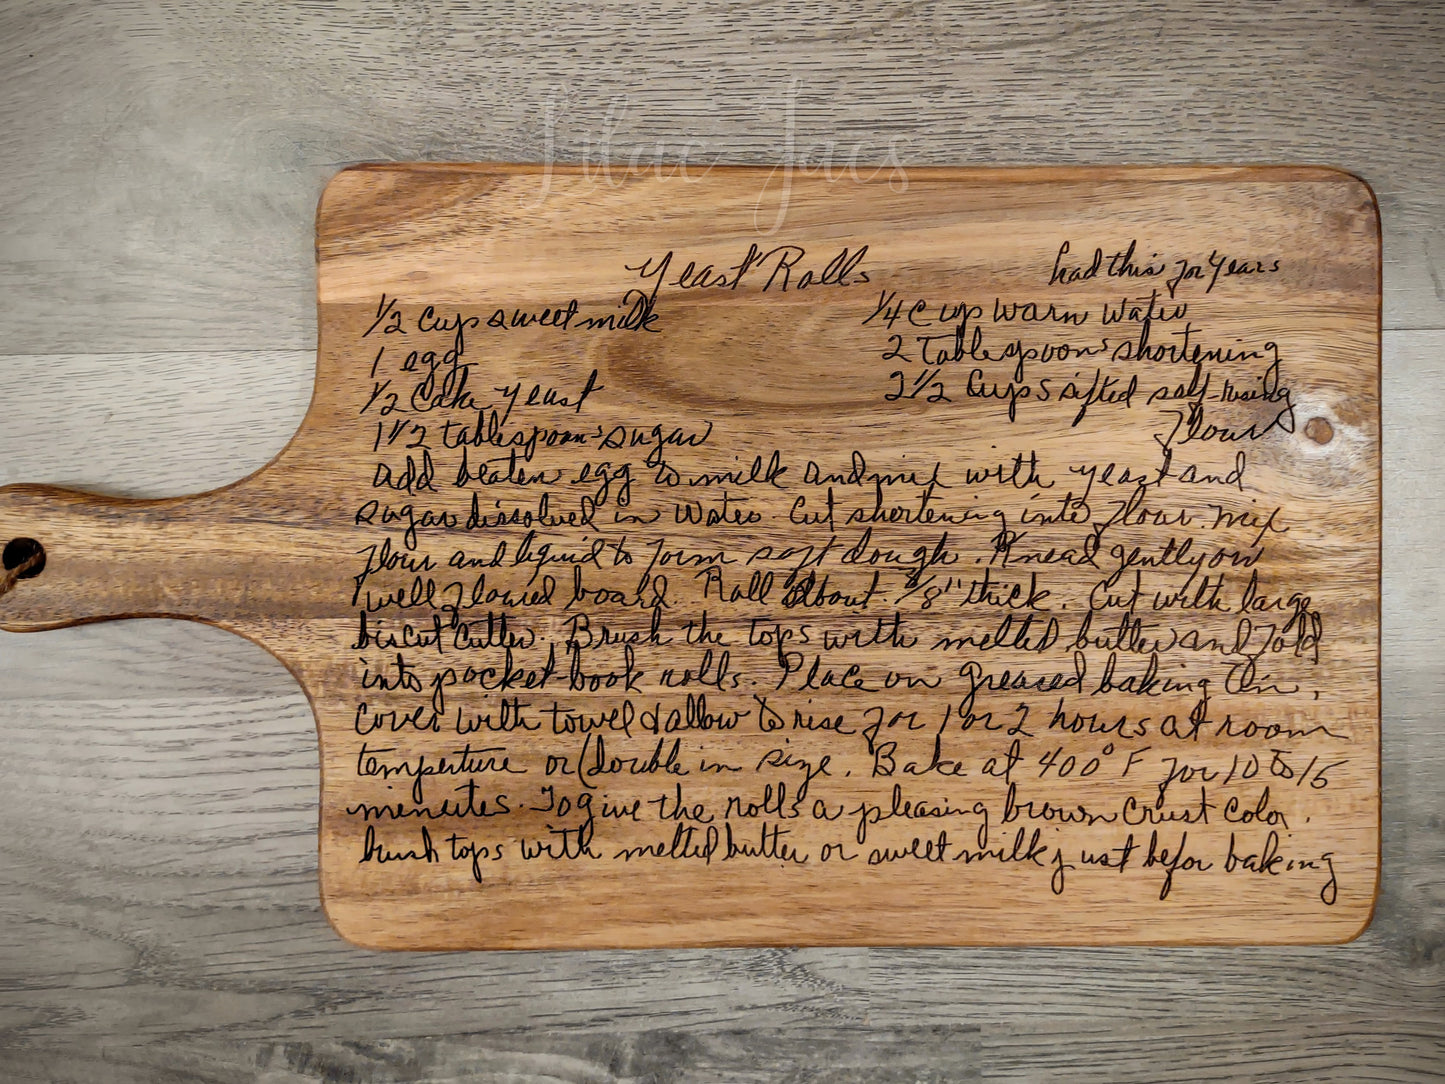 Lilac Jacs
Yeast Rolls
had this for years
1/2 Cup sweet milk
1/4 Cup warm water
1 egg
2 Tablespoons shortening
1/2 Cake yeast
2 1/2 Cups sifted self-rising
flour
1 1/2 tablespoons sugar
add beaten egg to milk and mix with yeast and
sugar dissolved in water. Cut shortening into flour. mix
flour and liquid to form soft dough. Knead gently on
well floured board. Roll about 3/8" thick. Cut with large
biscut cutter. Brush the tops with melted butter and fold
into pocket-book rolls. Place on greased baking tin.
Cover with towel & allow to rise for 1 or 2 hours at room
temperture or (double in size. Bake at 400° F for 10 to 15
minutes. To give the rolls a pleasing brown crust color.
brush tops with melted butter or sweet milk just befor baking